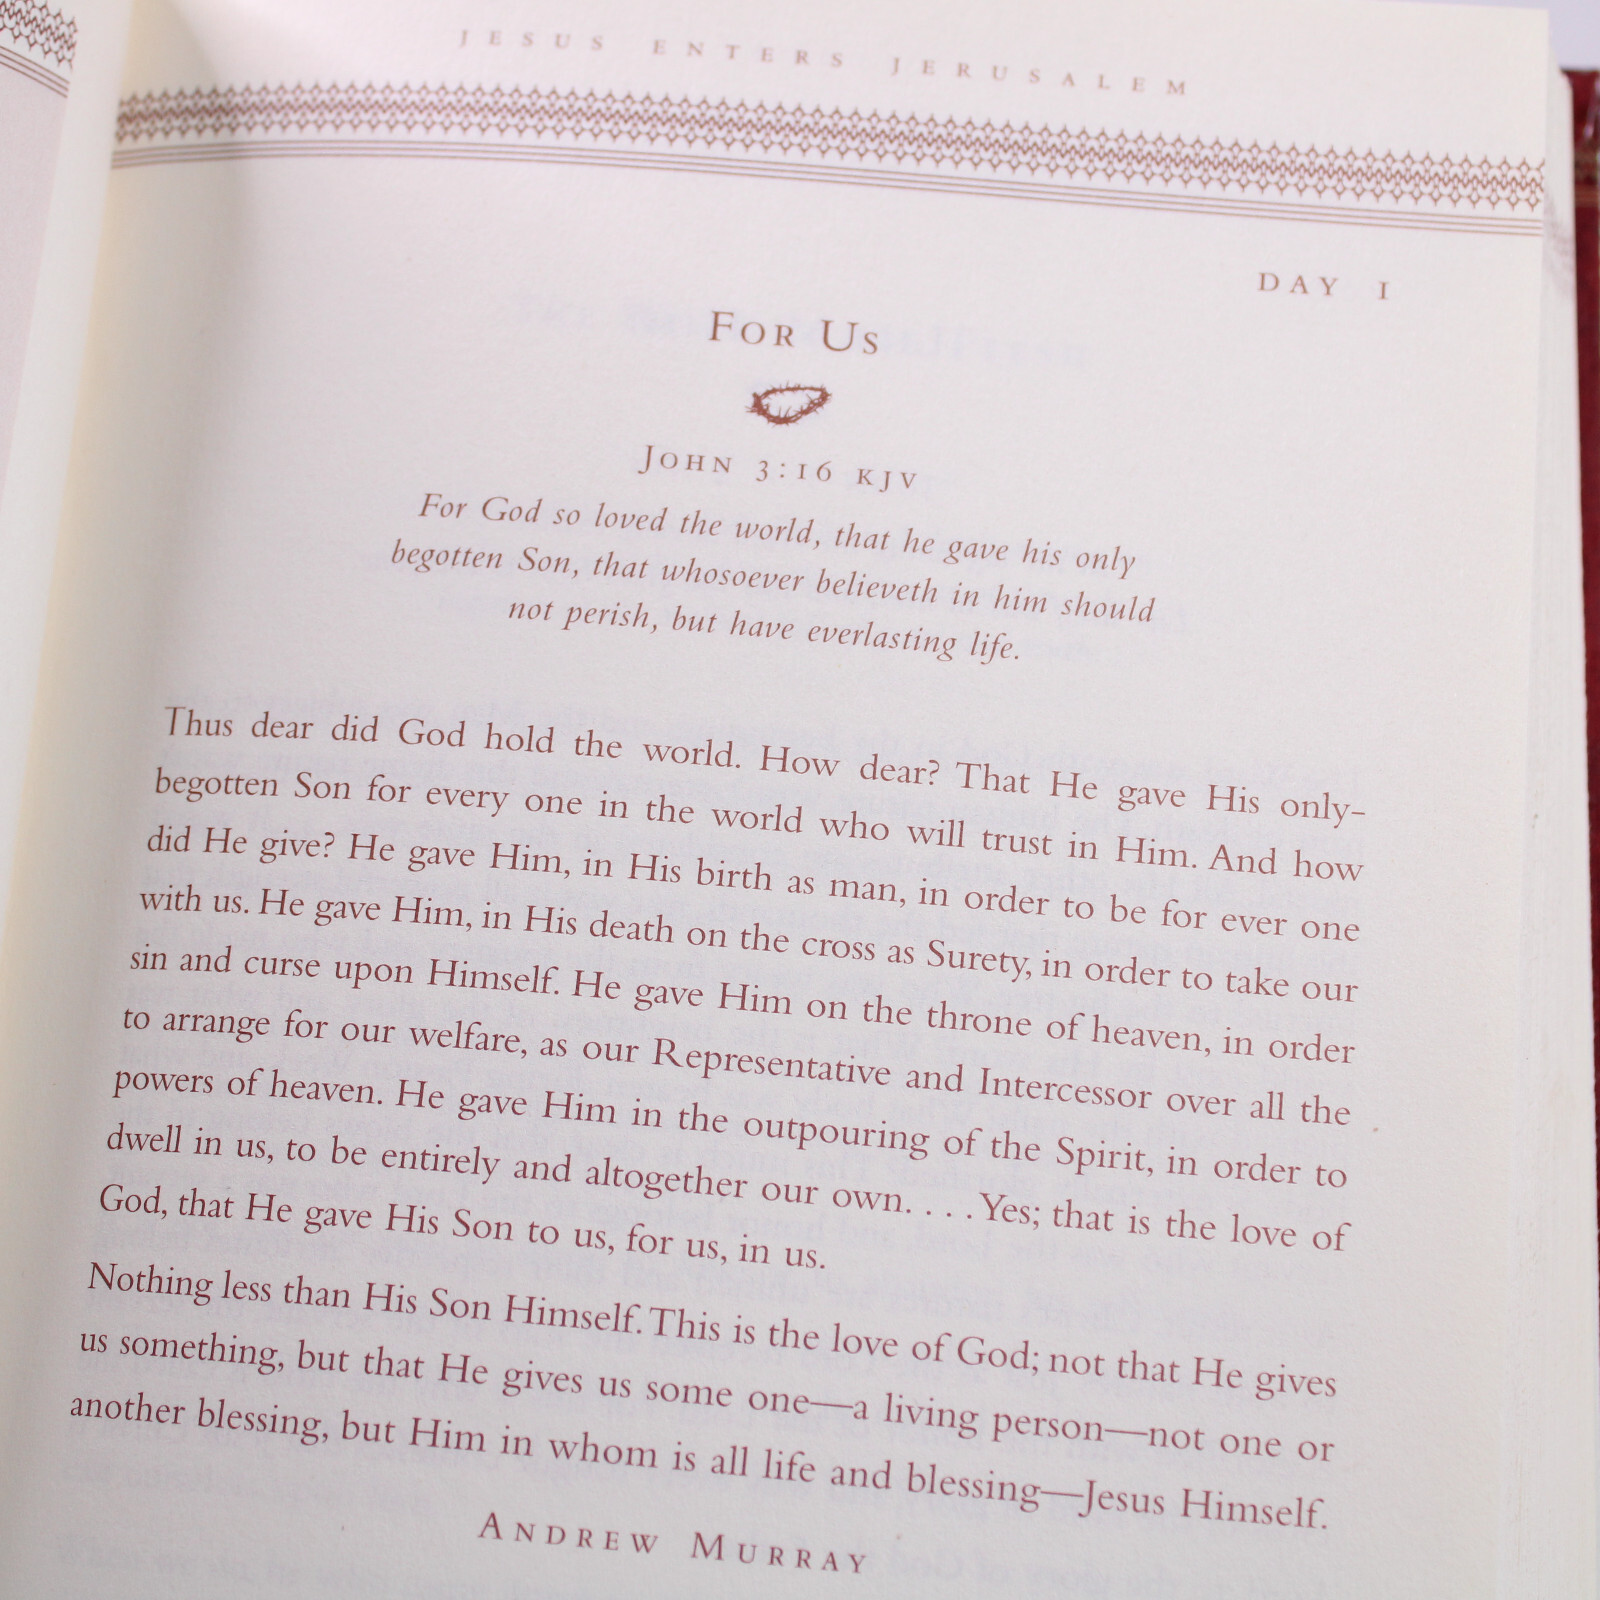 JESUS ENTERS JERUSALEM
DAY 1
FOR US
JOHN 3:16 KJV
For God so loved the world, that he gave his only
begotten Son, that whosoever believeth in him should
not perish, but have everlasting life.
Thus dear did God hold the world. How dear? That He gave His only-
begotten Son for every one in the world who will trust in Him. And how
did He give? He gave Him, in His birth as man, in order to be for ever one
with us. He gave Him, in His death on the cross as Surety, in order to take our
sin and curse upon Himself. He gave Him on the throne of heaven, in order
to arrange for our welfare, as our Representative and Intercessor over all the
powers of heaven. He gave Him in the outpouring of the Spirit, in order to
dwell in us, to be entirely and altogether our own. . . . Yes; that is the love of
God, that He gave His Son to us, for us, in us.
Nothing less than His Son Himself. This is the love of God; not that He gives
us something, but that He gives us some one—a living person—not one or
another blessing, but Him in whom is all life and blessing—Jesus Himself.
ANDREW MURRAY